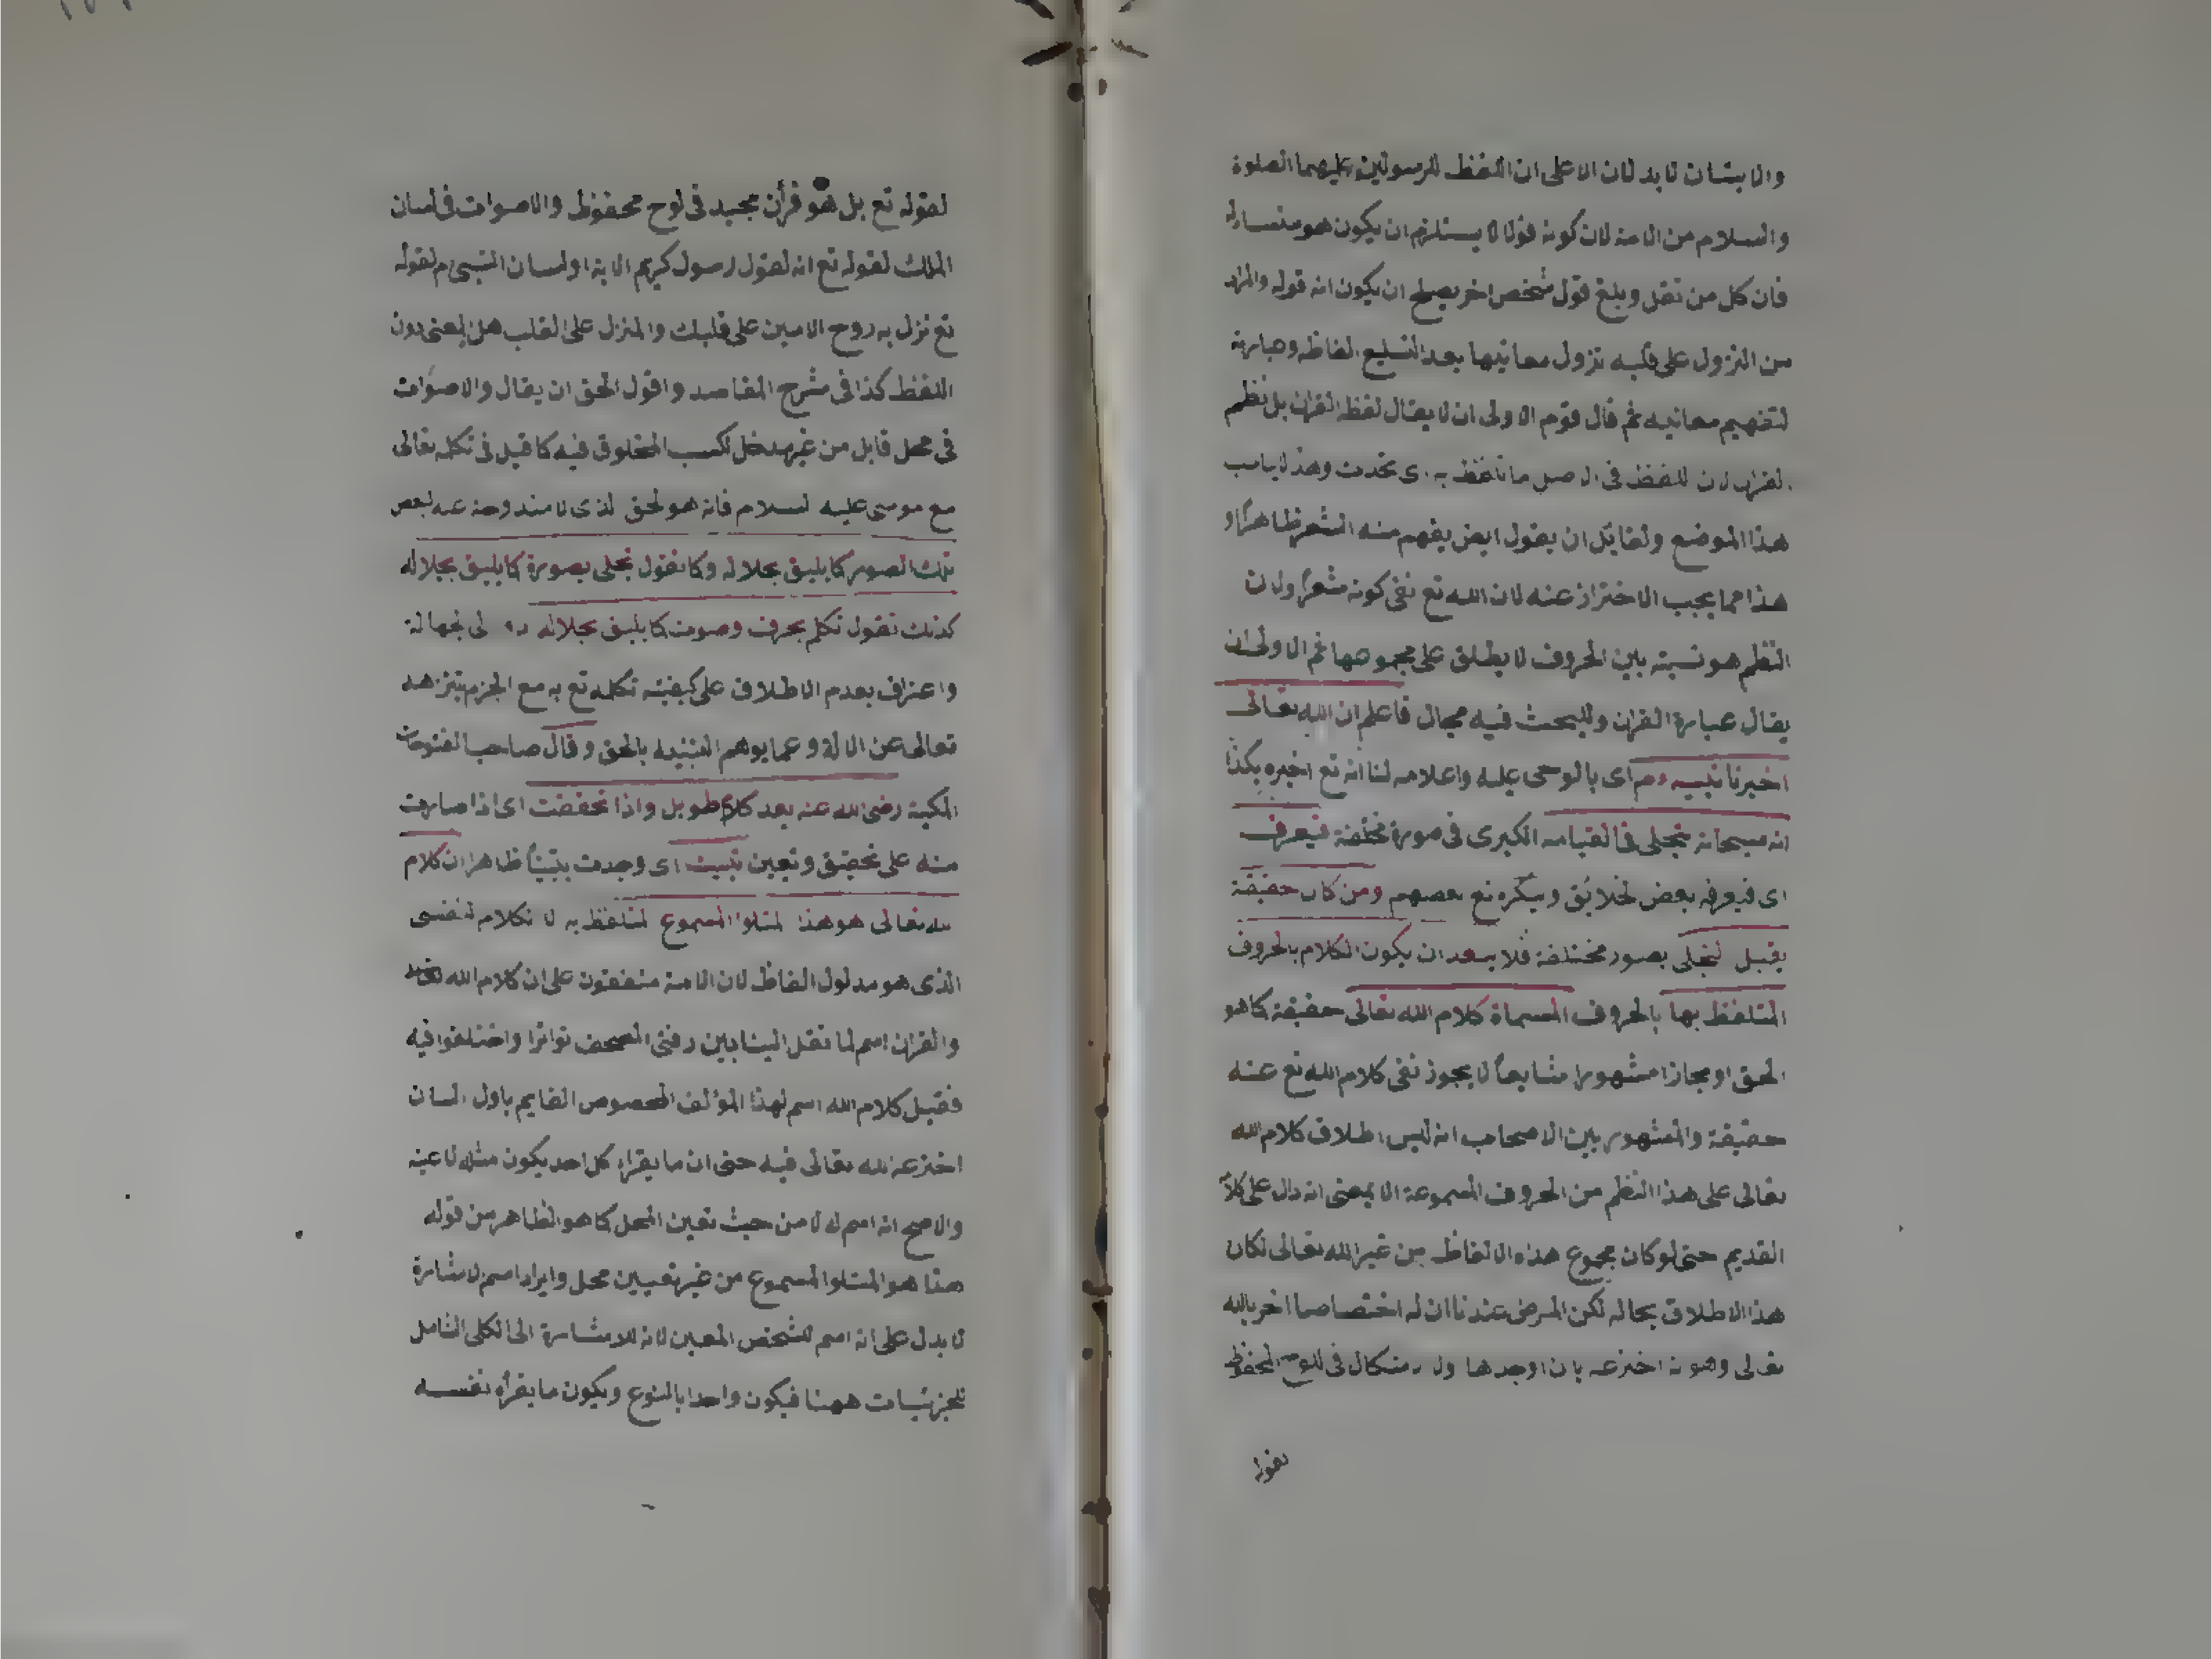 والايتان لا يدلان الا على ان اللفظ للرسولين عليهما الصلوة
والسلام من الامنة لان كونه قولا لا يستلزم ان يكون هو منشأ له
فان كل من نقل وبلغ قول شخص اخر يصلح ان يكون انه قوله والمراد
من النزول على قلبه نزول معانيها بعد التبليع الفاظه وعبارته
لتفهيم معانيه ثم قال قوم الاولى ان لا يقال لفظ القران بل نظم
القران لان اللفظ في الاصل ما تلفظ به اى تحدث وهذا لا يناسب
هذا الموضع ولقايل ان يقول ايض يفهم منه الشعر ظاهرا و
هذا مما يجب الاحتراز عنه لان الله تع نفى كونه شعرا ولان
النظم هو نسبته بين الحروف لا يطلق على مجموعها ثم الاولى ان
يقال عبارة القران وللبحث فيه مجال فاعلم ان الله تعالى
اخبرنا نبيه وم اى بالوحى عليه واعلامه لنا انه تع اخبره بكذا
انه سبحانه يتجلى في القيامه الكبرى في صورة مختلفة فيعرف
اى فيعرفه بعض الخلايق وينكره تع بعضهم ومن كان حقيقة
يقبل التجلى بصور مختلفة فلا يبعد ان يكون الكلام بالحروف
المتلفظ بها بالحروف المسماة كلام الله تعالى حقيقة كما هو
الحق او مجازا مشهورا شايعا لا يجوز نفى كلام الله تع عنه
حقيقة والمشهور بين الاصحاب انه ليس اطلاق كلام الله
تعالى على هذا النظم من الحروف المسموعة الا بمعنى انه دال على كلامه
القديم حتى لو كان مجموع هذه الالفاظ من غير الله تعالى لكان
هذا الاطلاق بحاله لكن المرضى عندنا ان له اختصاصا اخر بالله
تعالى وهو انه اخترعه بان اوجدها ولا اشكال في اللوح المحفوظ
لقوله
لقوله تع بل هو قرأن مجيد في لوح محفوظ والاصوات في لسان
الملك لقوله تع انه لقول رسول كريم الاية او لسان النبى م لقوله
تع نزل به روح الامين على قلبك والمنزل على القلب هل المعنى دون
اللفظ كذا في شرح المقاصد واقول الحق ان يقال والاصوات
في محل قابل من غير مدخل لكسب المخلوق فيه كما قيل في تكلمه تعالى
مع موسى عليه السلام فانه هو الحق الذى لا مندوحة عنه لبعض
تلك الصور كما يليق بجلاله وكما نقول تجلى بصورة كما يليق بجلاله
كذلك نقول تكلم بحرف وصوت كما يليق بجلاله
واعتراف بعدم الاطلاق على كيفيته تكلمه تع به مع الجزم بتنزهه
تعالى عن الالة و عما يوهم التنبيه بالحق وقال صاحب الفتوحات
المكية رضى الله عنه بعد كلام طويل واذا تحققت اى اذا صارت
منه على تحقيق وتعين تبينت اى وجدت بتينا ظاهرا ان كلام
الله تعالى هو هذا المتلوا المسموع المتلفظ به لا الكلام النفسى
الذى هو مدلول الفاظ لان الامنة متفقون على ان كلام الله
والقران اسم لما نقل الينا بين دفتى المصحف تواترا واختلفوا فيه
فقيل كلام الله اسم لهذا المؤلف المخصوص القايم باول لسان
اخترعه الله تعالى فيه حتى ان ما يقراه كل احد يكون مثله لا عينه
والاصح انه اسم له لا من حيث تعين المحل كما هو الظاهر من قوله
هذا هو المتلوا المسموع من غير تعيين محل وايراد اسم الاشارة
لا يدل على انه اسم للشخص المعين لانه للاشارة الى الكلى الشامل
للجزئيات ههنا فيكون واحدا بالنوع ويكون ما يقرأه نفسه